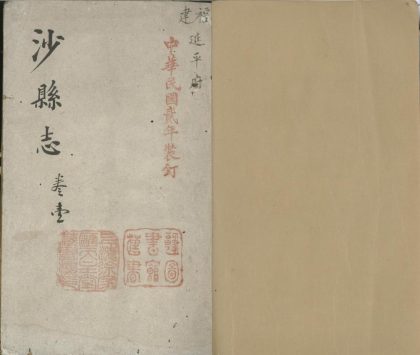 福建
延平府
中華民國貳年裝訂
沙縣志 卷壹